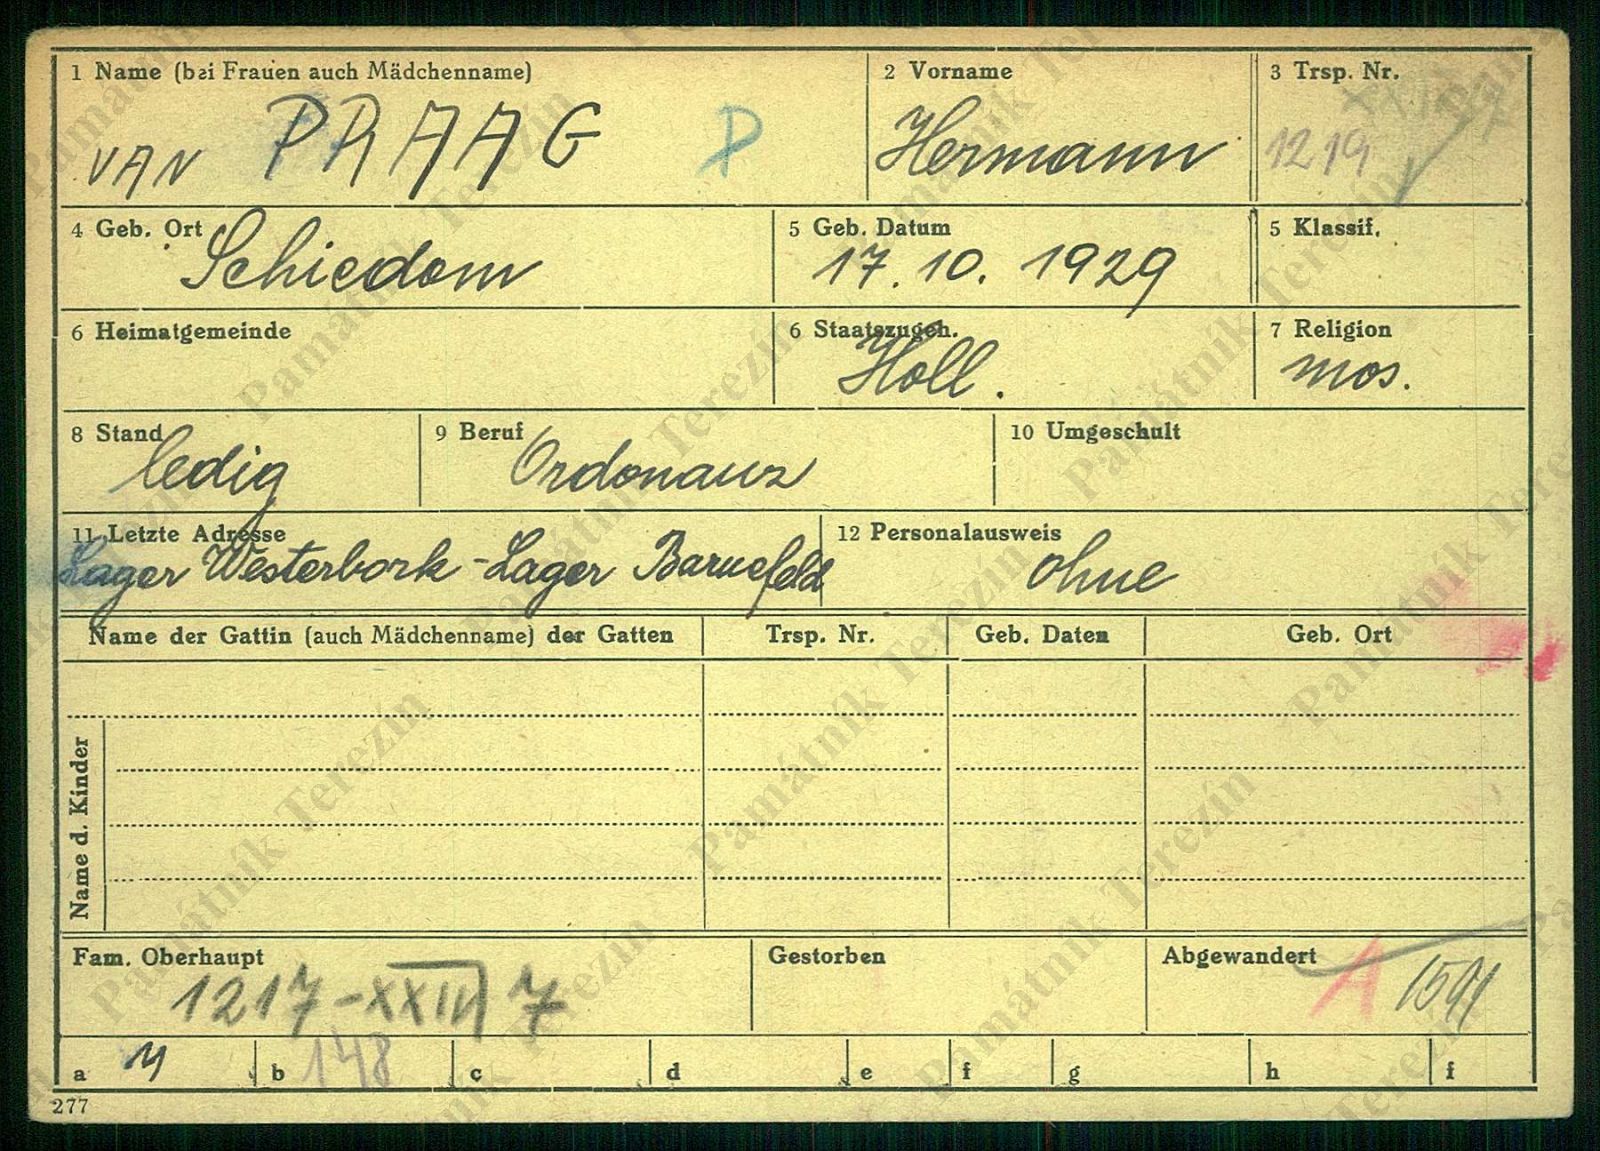 1 Name (bei Frauen auch Mädchenname)
VAN PRAAG P
2 Vorname
Hermann
3 Trsp. Nr.
1219
4 Geb. Ort
Schiedam
5 Geb. Datum
17. 10. 1929
5 Klassif.
6 Heimatgemeinde
6 Staatszugeh.
Holl.
7 Religion
mos.
8 Stand
ledig
9 Beruf
Ordonanz
10 Umgeschult
11 Letzte Adresse
Lager Westerbork - Lager Barnefeld
12 Personalausweis
ohne
Name der Gattin (auch Mädchenname) der Gatten
Trsp. Nr.
Geb. Daten
Geb. Ort
Name d. Kinder
Fam. Oberhaupt
1217-XXIV 7
Gestorben
Abgewandert
A 1591
a
b 148
c
d
e
f
g
h
f
277
Památník Terezín